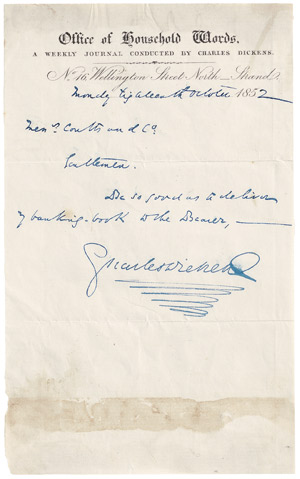 Office of Household Words,
A WEEKLY JOURNAL CONDUCTED BY CHARLES DICKENS.
No. 16, Wellington Street North, Strand.
Monday Eighteenth October 1852
Messrs. Coutts and Co.
Gentlemen.
Be so good as to deliver
my banking-book to the Bearer, —
Charles Dickens